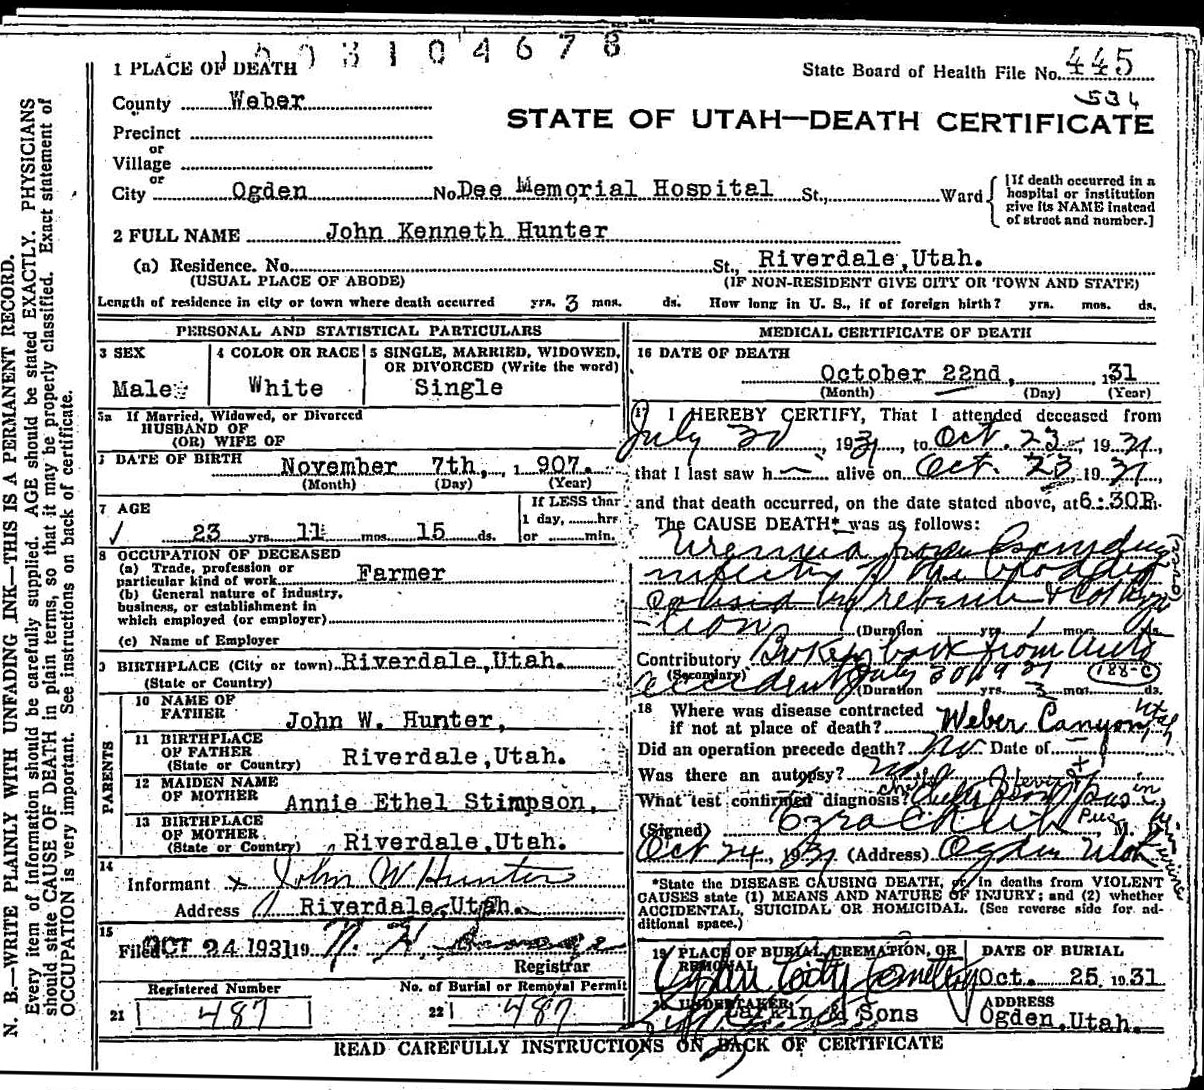 3 1 0 4 6 7 8
1 PLACE OF DEATH
State Board of Health File No. 445
534
County Weber
STATE OF UTAH—DEATH CERTIFICATE
Precinct
or
Village
or
City Ogden No. Dee Memorial Hospital St., Ward
[If death occurred in a hospital or institution give its NAME instead of street and number.]
2 FULL NAME John Kenneth Hunter
(a) Residence. No. St., Riverdale, Utah.
(USUAL PLACE OF ABODE) (IF NON-RESIDENT GIVE CITY OR TOWN AND STATE)
Length of residence in city or town where death occurred yrs. 3 mos. ds. How long in U. S., if of foreign birth? yrs. mos. ds.
PERSONAL AND STATISTICAL PARTICULARS
3 SEX
Male
4 COLOR OR RACE
White
5 SINGLE, MARRIED, WIDOWED,
OR DIVORCED (Write the word)
Single
5a If Married, Widowed, or Divorced
HUSBAND OF
(OR) WIFE OF
DATE OF BIRTH November 7th, 1907.
(Month) (Day) (Year)
7 AGE
23 yrs. 11 mos. 15 ds.
If LESS than
1 day, hrs.
or min.
8 OCCUPATION OF DECEASED
(a) Trade, profession or
particular kind of work Farmer
(b) General nature of industry,
business, or establishment in
which employed (or employer)
(c) Name of Employer
9 BIRTHPLACE (City or town) Riverdale, Utah.
(State or Country)
PARENTS
10 NAME OF
FATHER John W. Hunter,
11 BIRTHPLACE
OF FATHER
(State or Country) Riverdale, Utah.
12 MAIDEN NAME
OF MOTHER Annie Ethel Stimpson,
13 BIRTHPLACE
OF MOTHER
(State or Country) Riverdale, Utah.
14
Informant x John W Hunter
Address Riverdale, Utah.
15
Filed OCT 24 1931 19
Registrar
Registered Number
21 487
No. of Burial or Removal Permit
22 487
MEDICAL CERTIFICATE OF DEATH
16 DATE OF DEATH
October 22nd, 131
(Month) (Day) (Year)
17 I HEREBY CERTIFY, That I attended deceased from
July 30, 1931, to Oct. 23, 1931
that I last saw h alive on Oct. 23 1931
and that death occurred, on the date stated above, at 6:30P.m.
The CAUSE DEATH* was as follows:
Uremia from
infection of the bladder
caused by
(Duration yrs. 1 mos. ds.
Contributory Broken back from Auto
(Secondary) accident July 30 1931 188-C
(Duration yrs. 3 mos. ds.
18 Where was disease contracted
if not at place of death? Weber Canyon, Utah
Did an operation precede death? No Date of
Was there an autopsy?
What test confirmed diagnosis? pus in
(Signed) M.
Oct 24, 1931 (Address) Ogden Utah
*State the DISEASE CAUSING DEATH, or in deaths from VIOLENT
CAUSES state (1) MEANS AND NATURE OF INJURY; and (2) whether
ACCIDENTAL, SUICIDAL OR HOMICIDAL. (See reverse side for ad-
ditional space.)
19 PLACE OF BURIAL, CREMATION, OR
REMOVAL
Ogden City Cemetery
DATE OF BURIAL
Oct. 25 1931
UNDERTAKER
Larkin & Sons
ADDRESS
Ogden, Utah.
READ CAREFULLY INSTRUCTIONS ON BACK OF CERTIFICATE
N. B.—WRITE PLAINLY WITH UNFADING INK—THIS IS A PERMANENT RECORD.
Every item of information should be carefully supplied. AGE should be stated EXACTLY. PHYSICIANS
should state CAUSE OF DEATH in plain terms, so that it may be properly classified. Exact statement of
OCCUPATION is very important. See instructions on back of certificate.